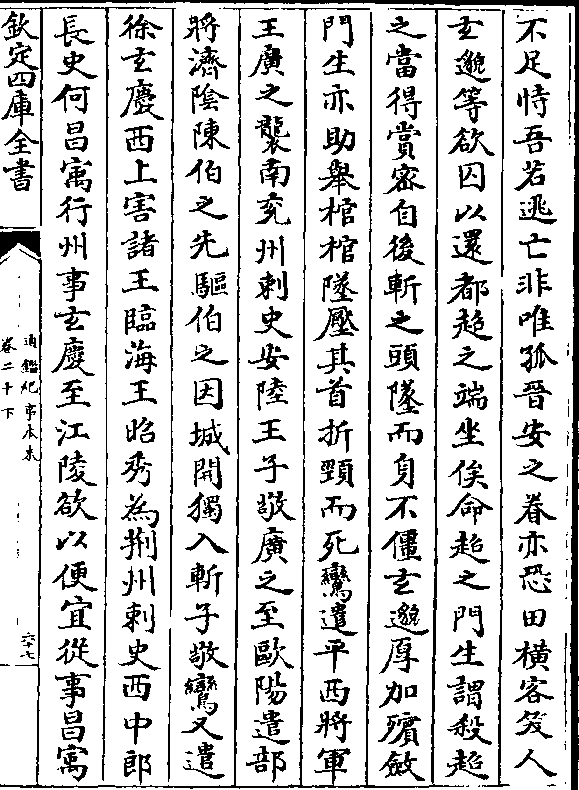 不足恃吾若逃亡非唯孤晉安之眷亦恐田橫客笑人
玄邈等欲囚以還都超之端坐俟命超之門生謂殺超
之當得賞密自後斬之頭墜而身不僵玄邈厚加殯斂
門生亦助舉棺棺墜壓其首折頸而死鸞遣平西將軍
王廣之襲南兖州刺史安陸王子敬廣之至歐陽遣部
將濟陰陳伯之先驅伯之因城開獨入斬子敬鸞又遣
徐玄慶西上害諸王臨海王昭秀為荆州刺史西中郎
長史何昌㝢行州事玄慶至江陵欲以便宜從事昌㝢
欽定四庫全書
通鑑紀事本末
卷二十下
六十七